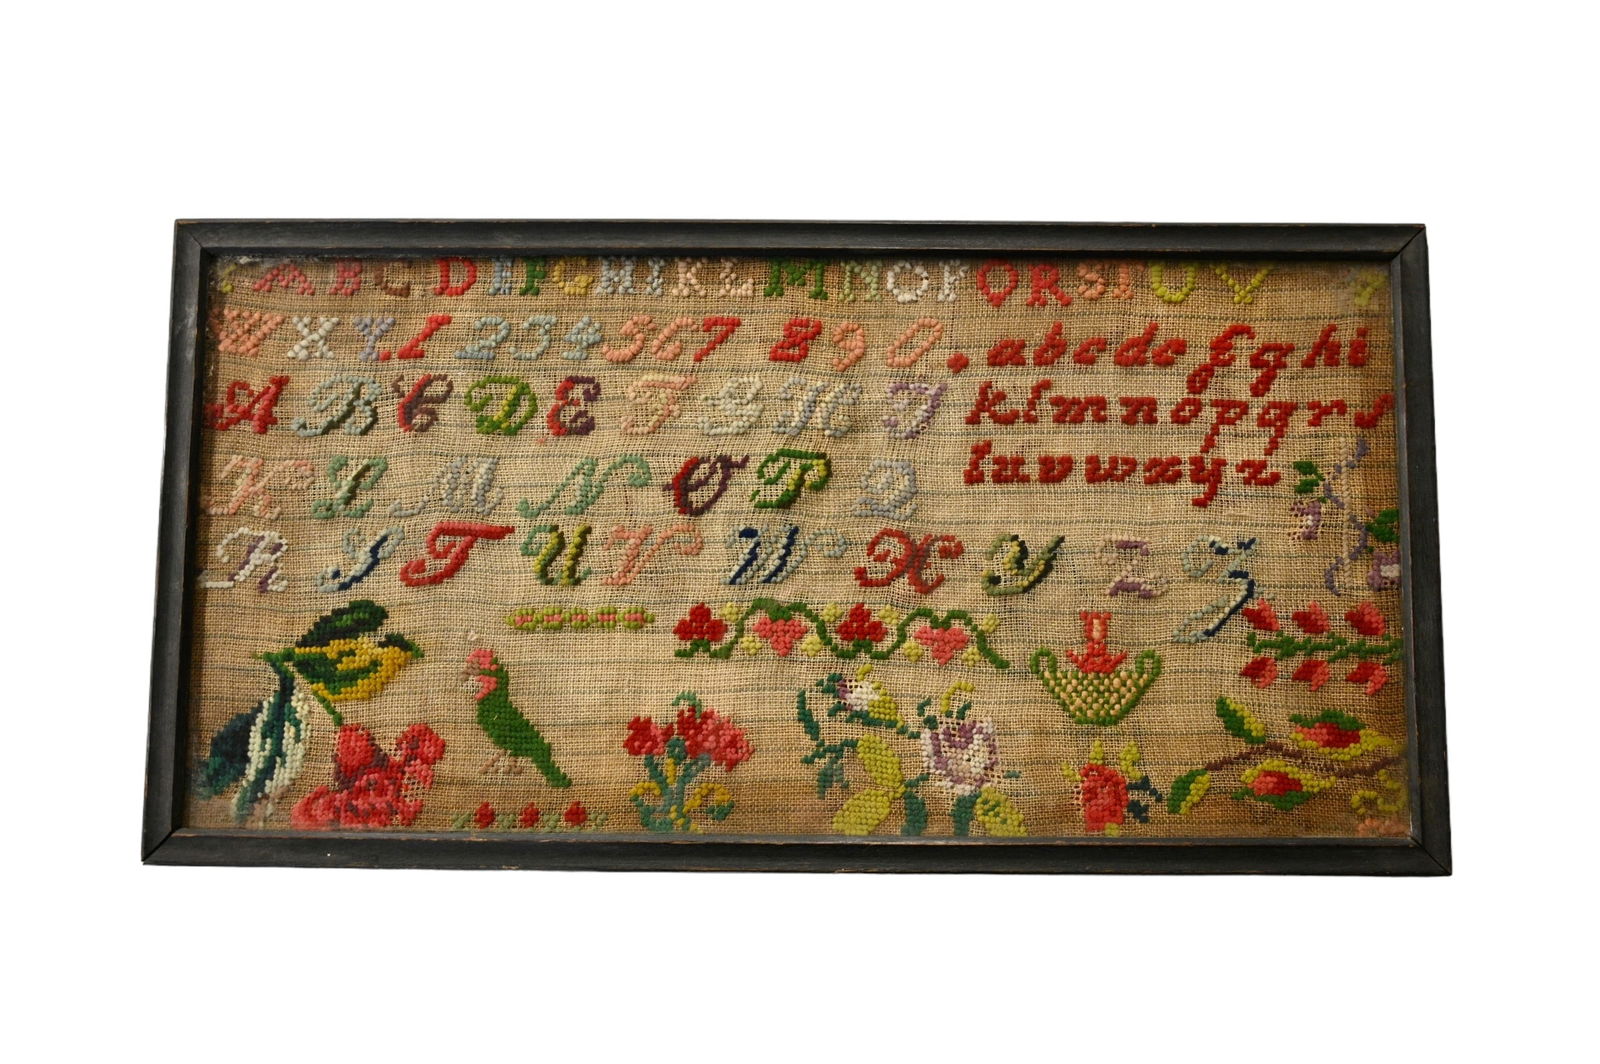 A B C D E F G H I K L M N O P Q R S T U V
W X Y 1 2 3 4 5 6 7 8 9 0 . a b c d e f g h i
A B C D E F G H I k l m n o p q r s
K L M N O P Q t u v w x y z
R S T U V W X Y Z Z